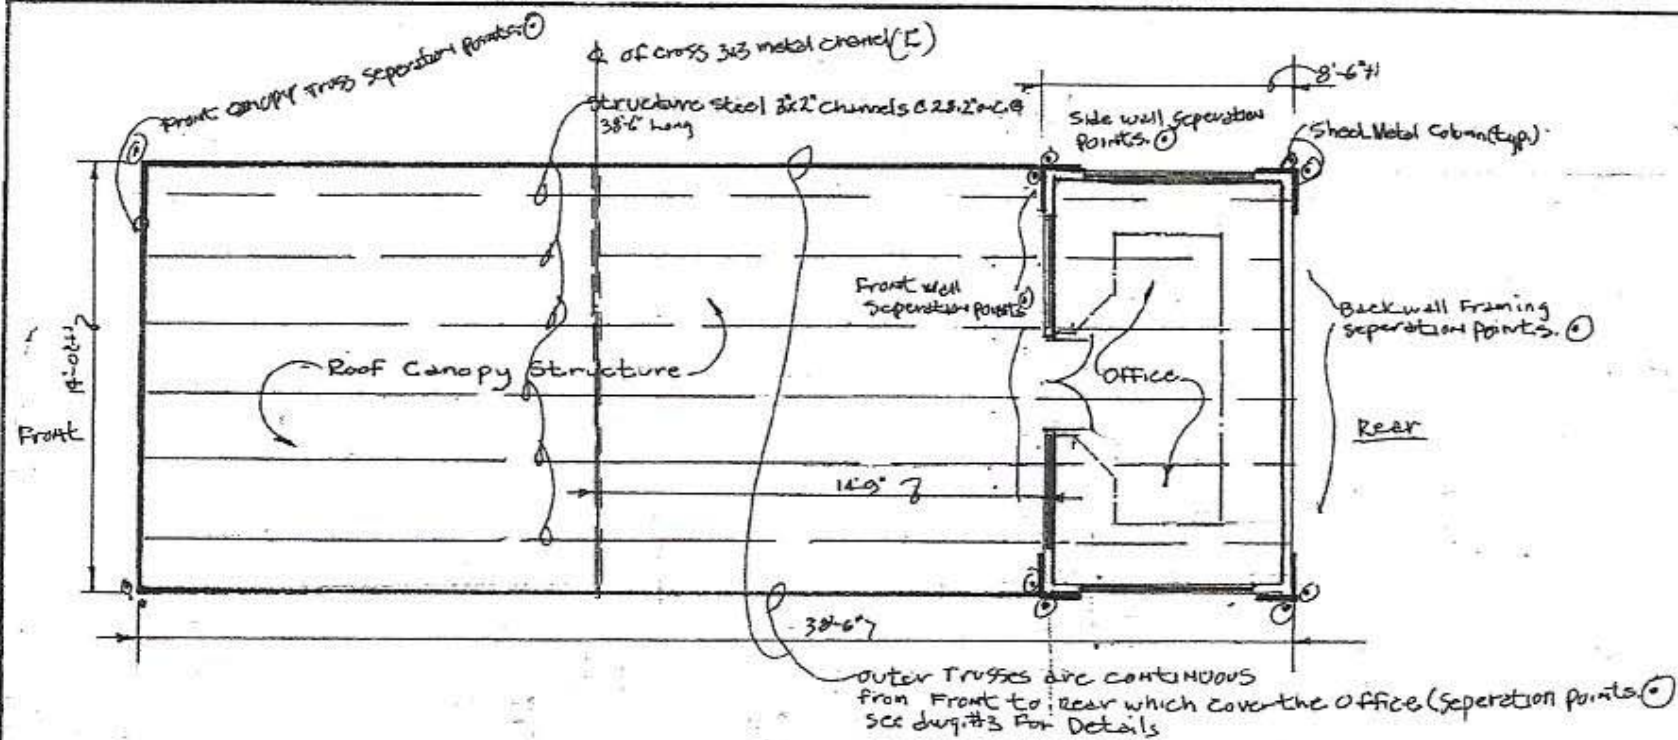 Front canopy Truss Seperation Points.
℄ of cross 3x3 metal channel (C)
8'-6"±
Structure steel 3"x2" channels @ 28.2" o.c.
38'-6" Long
Side wall seperation
Points.
Sheet Metal Column (typ.)
Front wall
Seperation points
Back wall Framing
seperation Points.
Roof Canopy Structure
Office
14'-0"±
Front
Rear
14'-9"
38'-6"
outer Trusses are continuous
from Front to Rear which cover the office (Seperation Points.
See dwg.#3 For Details